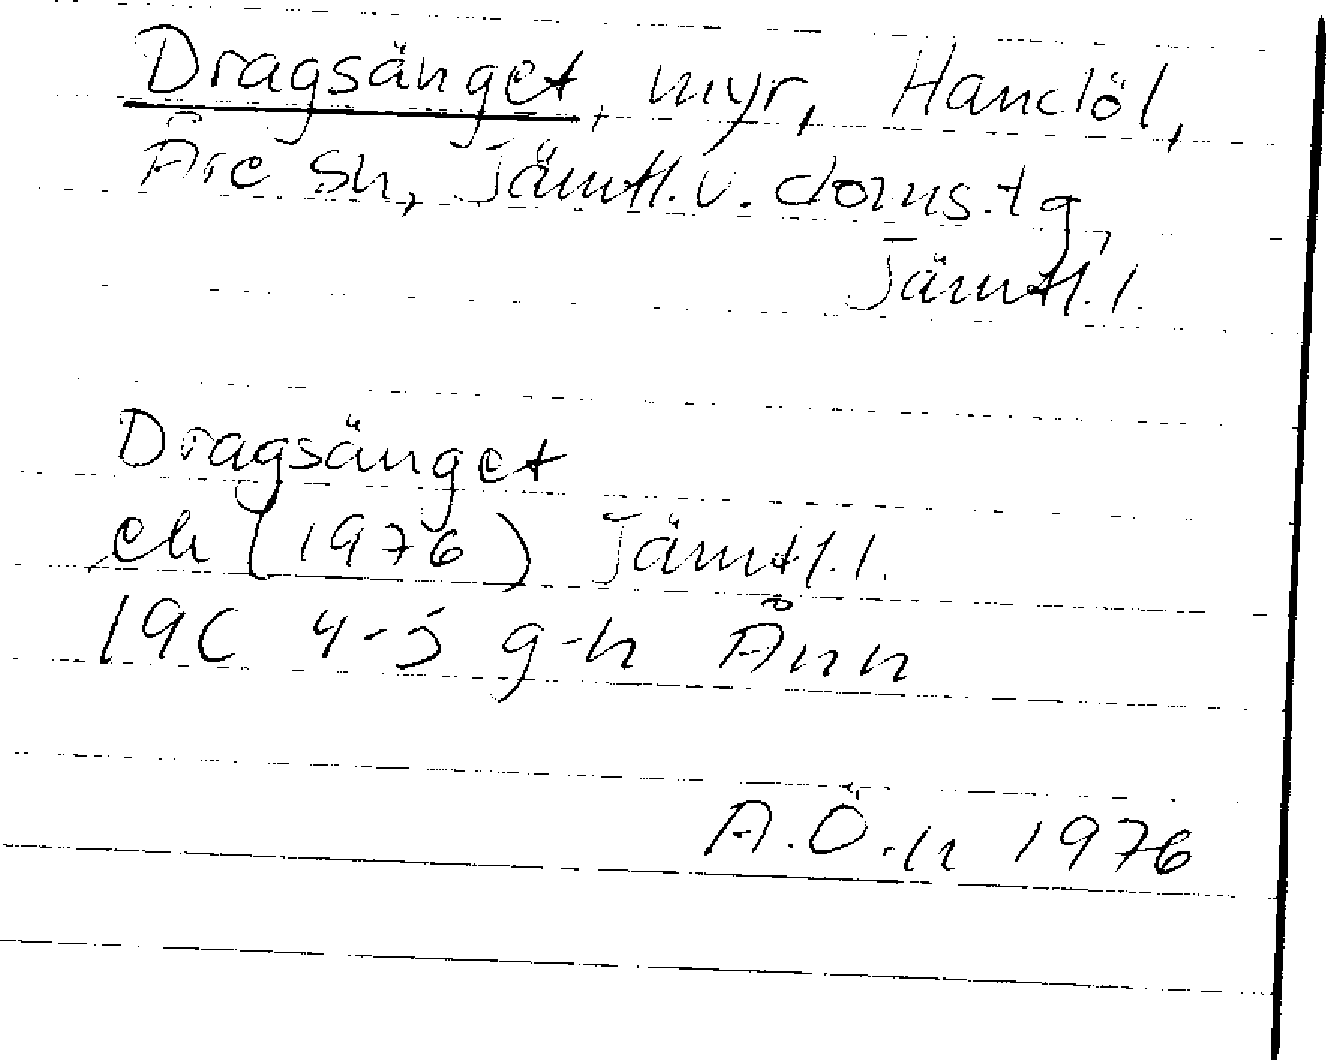 Dragsänget, myr, Handöl,
Åre sn, Jämtl.v. doms.tg,
Jämtl.l.
Dragsänget
ek (1976) Jämtl.l.
19C 4-5 g-h Ånn
A.Ö-n 1976